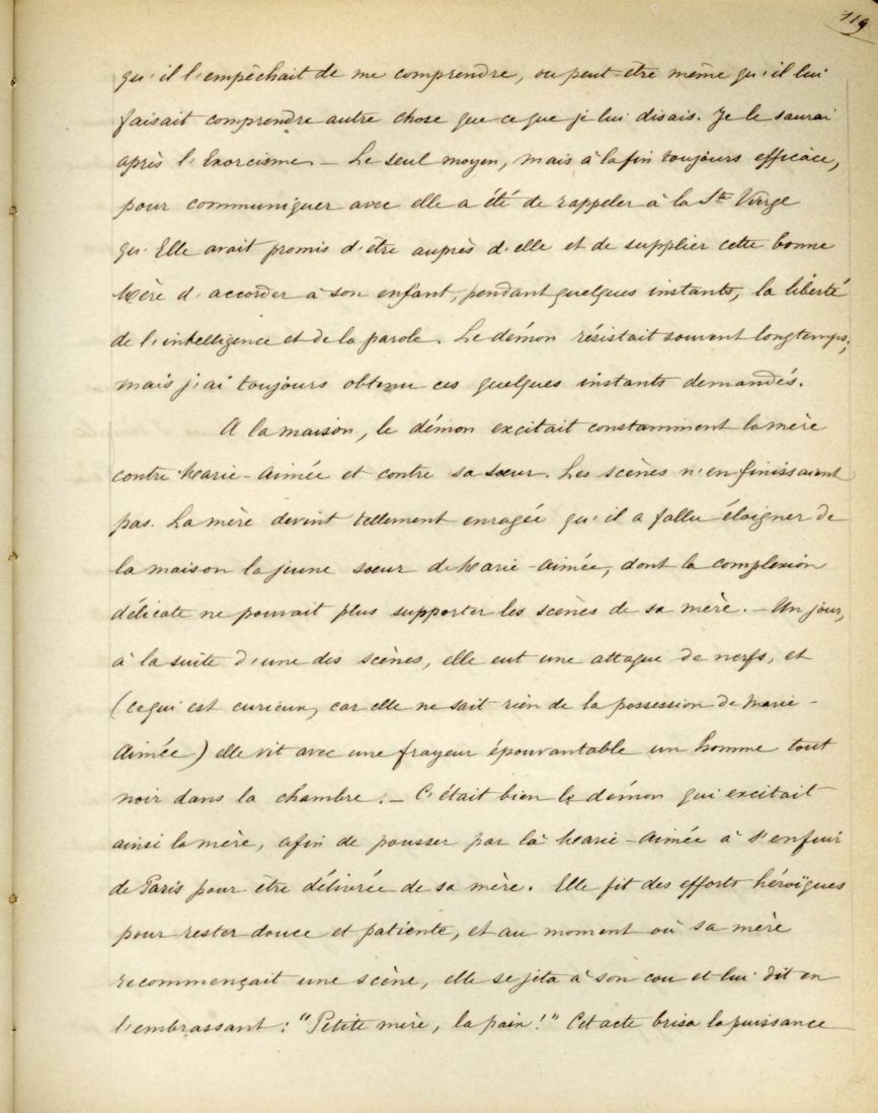 119
qu'il l'empêchait de me comprendre, ou peut-être même qu'il lui
faisait comprendre autre chose que ce que je lui disais. Je le saurai
après l'Exorcisme. — Le seul moyen, mais à la fin toujours efficace,
pour communiquer avec elle a été de rappeler à la Ste Vierge
qu'Elle avait promis d'être auprès d'elle et de supplier cette bonne
Mère d'accorder à son enfant, pendant quelques instants, la liberté
de l'intelligence et de la parole. Le démon résistait souvent longtemps;
mais j'ai toujours obtenu ces quelques instants demandés.
A la maison, le démon excitait constamment la mère
contre Marie-Aimée et contre sa sœur. Les scènes n'en finissaient
pas. La mère devint tellement enragée qu'il a fallu éloigner de
la maison la jeune sœur de Marie-Aimée, dont la complexion
délicate ne pouvait plus supporter les scènes de sa mère. — Un jour,
à la suite d'une des scènes, elle eut une attaque de nerfs, et
(ce qui est curieux, car elle ne sait rien de la possession de Marie-
Aimée) elle vit avec une frayeur épouvantable un homme tout
noir dans la chambre. — C'était bien le démon qui excitait
ainsi la mère, afin de pousser par là Marie-Aimée à s'enfuir
de Paris pour être délivrée de sa mère. Elle fit des efforts héroïques
pour rester douce et patiente, et au moment où sa mère
recommençait une scène, elle se jeta à son cou et lui dit en
l'embrassant: "Petite mère, la paix!" Cet acte brisa la puissance